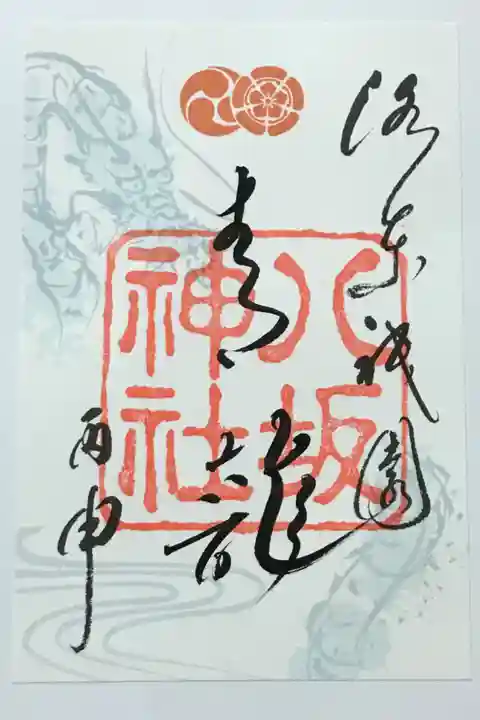 洛東祇園
青龍
丙申
八坂
神社